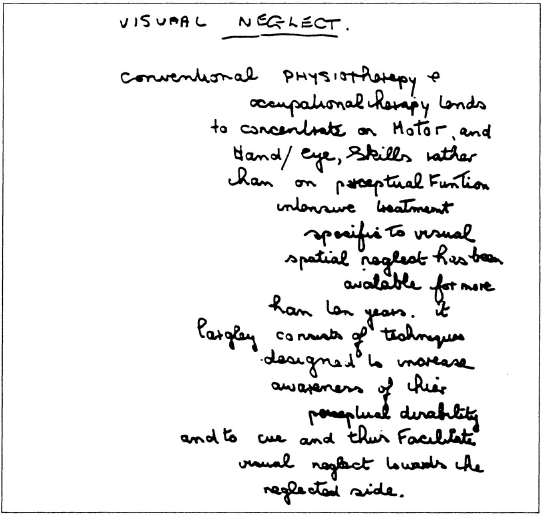 VISUAL NEGLECT.
Conventional PHYSIOtherapy &
occupational therapy tends
to concentrate on Motor, and
Hand/eye, Skills rather
than on perceptual Funtion
intensive treatment
specific to visual
spatial neglect has been
available for more
than ten years. it
largley consists of techniques
designed to increase
awareness of thier
perceptual disability
and to cue and thus Facilitate
visual neglect towards the
neglected side.